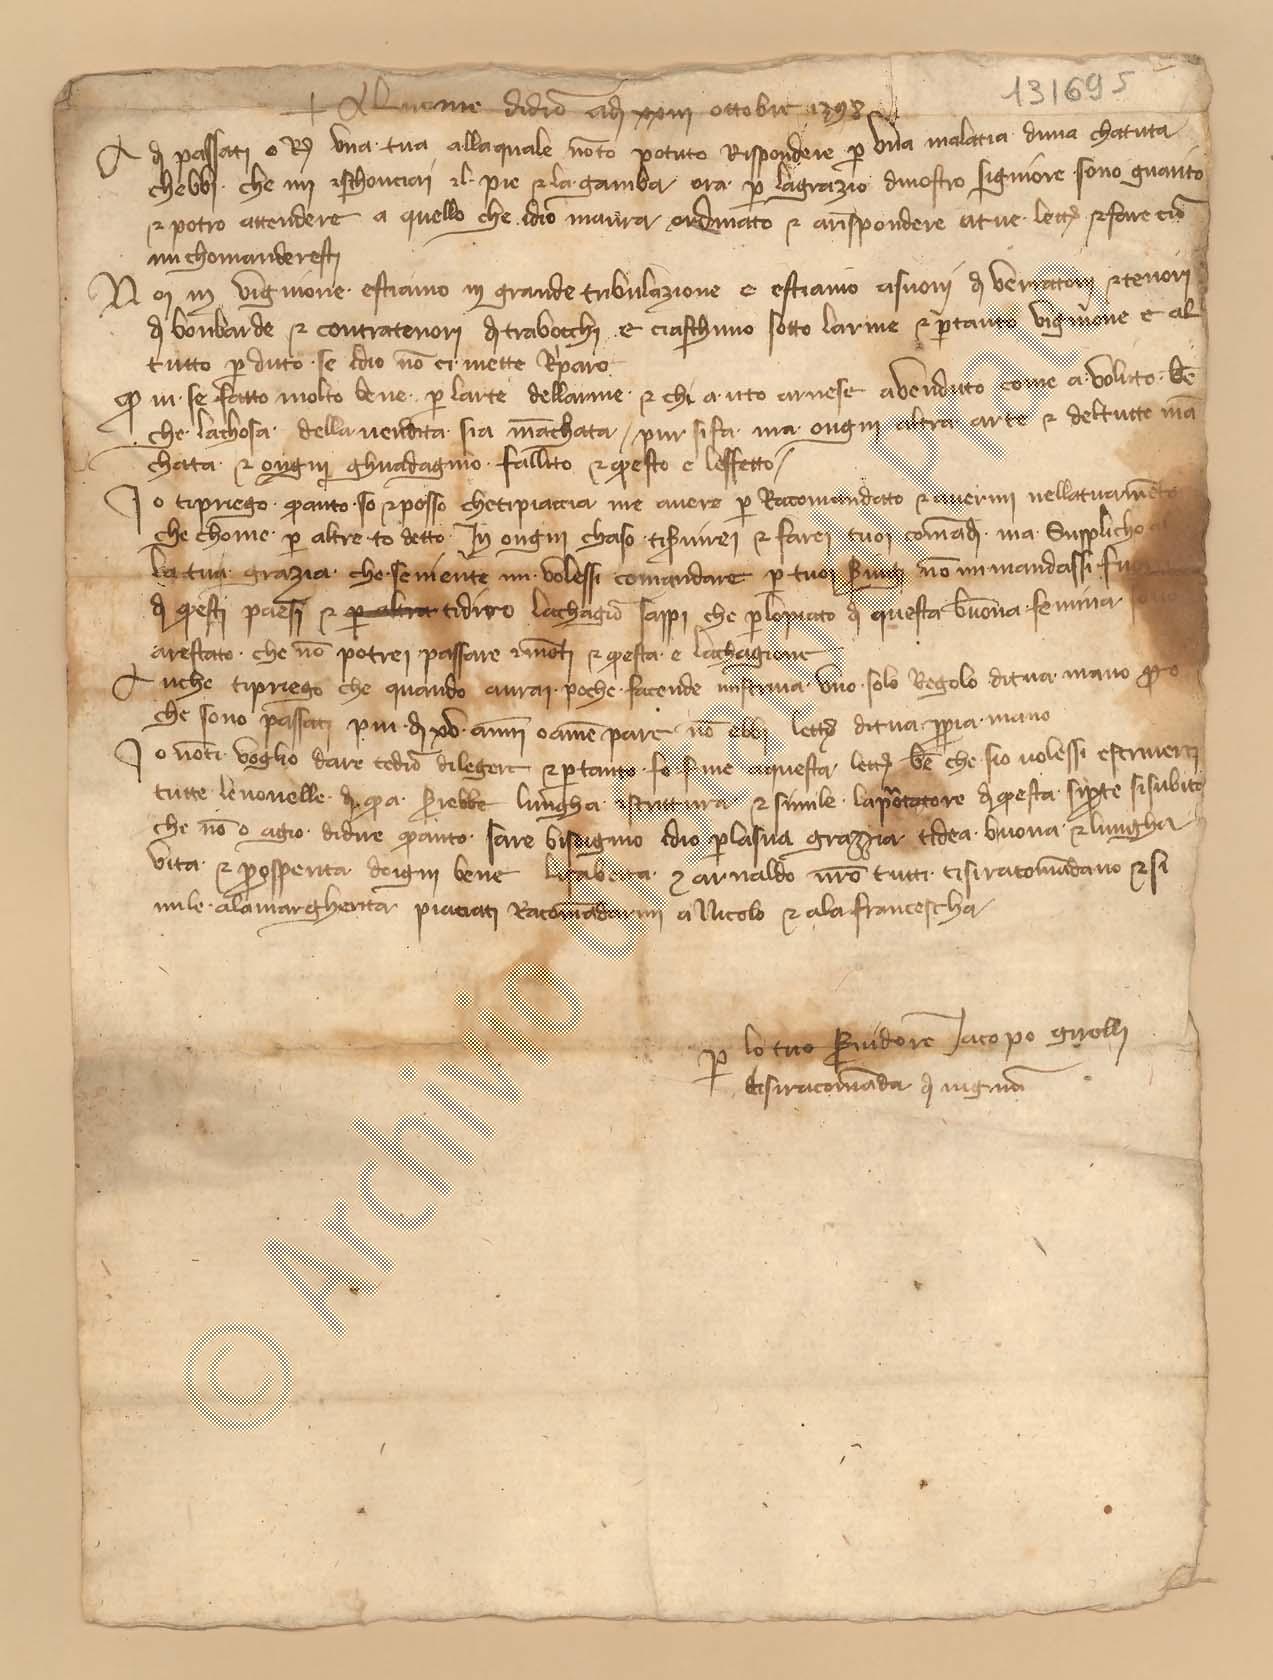 131695
+ Al nome didio adj xxiii ottobre 1398
A dj passati o Rº una tua allaquale noto potuto Rispondere p una malatia duna chaduta
chebbi che mi ischonciai il pie e la gamba ora p lagrazio dinostro signiore sono guarito
e potro attendere a quello che idio maura ordinato e arispondere atue lettº e fare cio
mi chomanderesti
Noi in vignione estiamo in grande tribulazione e estiamo asuonj dj verratonj e tenorj
dj bonbarde e contratenorj dj trabocchi e ciaschuno sotto larme e ptanto vignone e al
tutto pduto se idio no ci mette Riparo
Qui se fatto molto bene p larte dellarme e chi a uto arnese a venduto come a voluto be
che lachosa della vendita sia machata / pur si fa ma ongni altra arte e deltutto ma
chata e ongni ghuadagnio fallito e questo e leffetto /
Io tipriego quanto so e posso chetipiaccia me avere p Racomandato e avermi nellatua
che chome p altre to detto In ongni chaso tiservirei e farei tuoi comadj ma Supplicho
la tua grazia che se niente mi volessi comandare p tuoi no mi mandassi
dj questi paesi e p altro tidiro lachagio sappi che plopiato dj questa buona femina sono
arestato che no potrei passare i moti e questa e lachagione
Anche tipriego che quando aurai poche facende miscriva uno solo Regolo ditua mano
che sono passati piu dj xv annj oame pare no ebbi lettº ditua ppia mano
Io noti voglio dare tedio dilegere e ptanto fo fine aquesta lettº be che sio volessi escriverti
tutte le novelle dj qua serebbe lungha iscrittura e simile lapotatore dj questa si pte si subito
che no o agio didire quanto sare bisognio idio plasua grazzia tidea buona e lungha
vita e prosperita dogni bene lisabetta e arnaldo nro tutti tisiracomadano e si
mile alamargherita piaciati Racomadarmi a Nicolo e ala francescha
P lo tuo servidore Iacopo girolli
tisiracomada dj vignio
© Archivio di Stato Prato